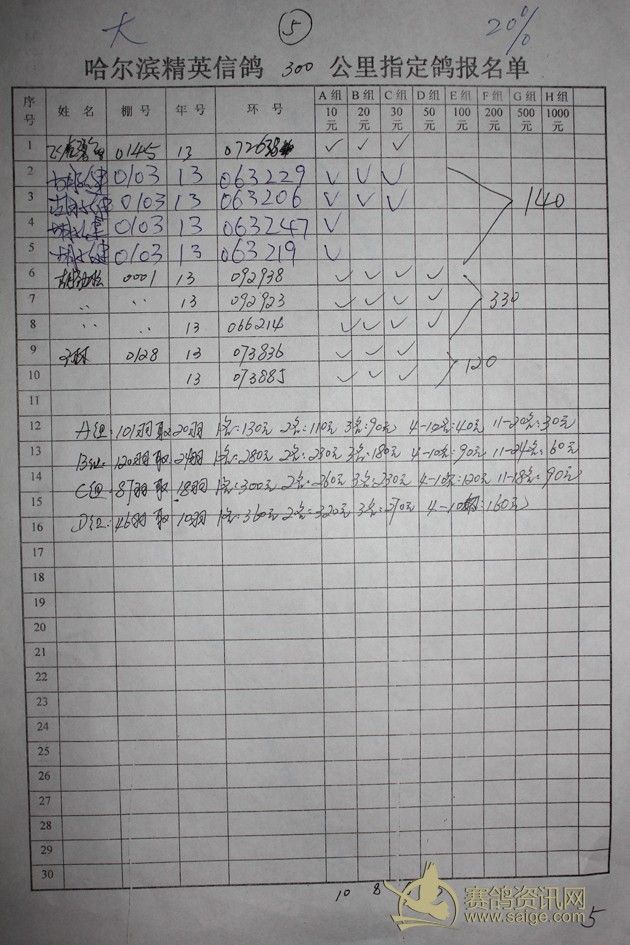 大 ⑤ 20%
哈尔滨精英信鸽 300 公里指定鸽报名单
序号 姓名 棚号 年号 环号 A组10元 B组20元 C组30元 D组50元 E组100元 F组200元 G组500元 H组1000元
1 0145 13 ✓ ✓ ✓
2 0103 13 063229 ✓ ✓ ✓
3 0103 13 063206 ✓ ✓ ✓ 140
4 0103 13 063247 ✓
5 0103 13 063219 ✓
6 0001 13 092938 ✓ ✓ ✓ ✓
7 〃 〃 13 092923 ✓ ✓ ✓ ✓ 330
8 〃 〃 13 066214 ✓ ✓ ✓ ✓
9 0128 13 073836 ✓ ✓ ✓
10 13 073885 ✓ ✓ ✓ 120
11
12 A组:101羽取20羽 1名:130元 2名:110元 3名:90元 4-10名:40元 11-20名:30元
13 B组:120羽取24羽 1名:280元 2名:230元 3名:180元 4-10名:90元 11-24名:60元
14 C组:87羽取18羽 1名:300元 2名:260元 3名:230元 4-10名:120元 11-18名:90元
15
16 D组:46羽取10羽 1名:360元 2名:320元 3名:270元 4-10名:160元
17
18
19
20
21
22
23
24
25
26
27
28
29
30
10 8
赛鸽资讯网
www.saige.com
5